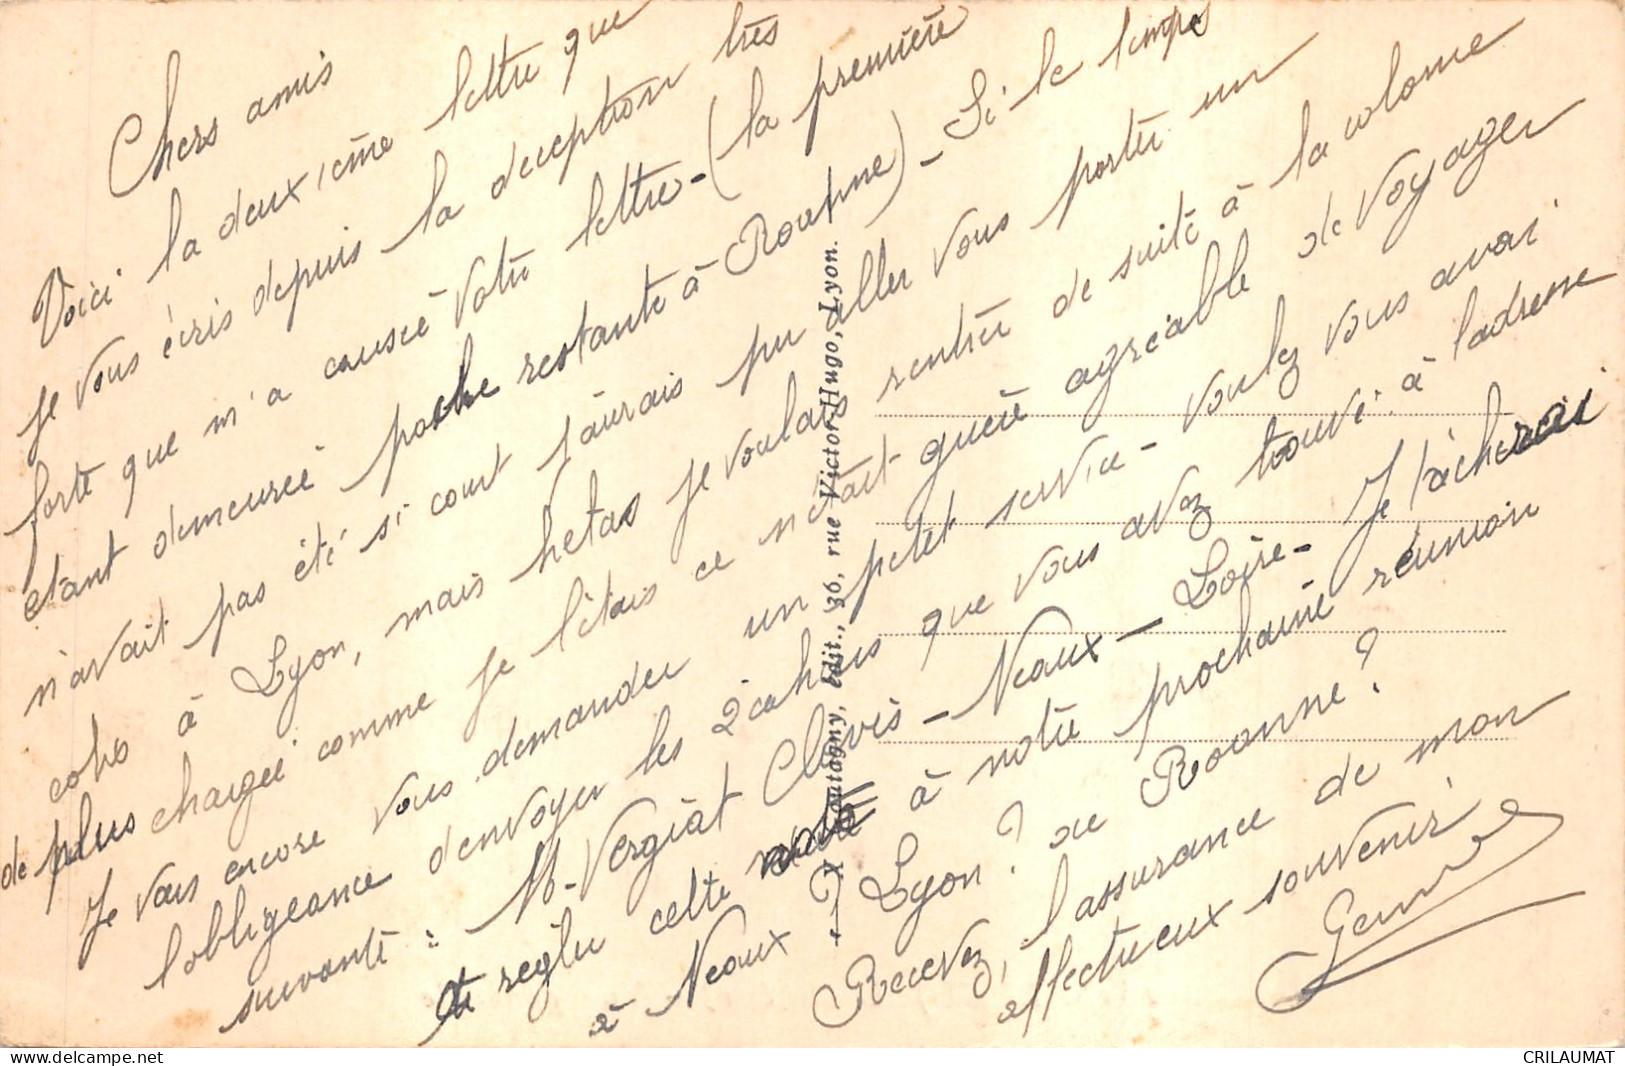 Chers amis
Voici la deuxième lettre que
je vous écris depuis la déception très
forte que m'a causée votre lettre - (la première
étant demeurée poste restante à Roanne) - Si le temps
n'avait pas été si court j'aurais pu aller vous porter un
écho à Lyon, mais hélas je voulais rentrer de suite à la colonie
de plus chargée comme je l'étais ce n'était guère agréable de voyager
Je vais encore vous demander un petit service - voulez vous avoir
l'obligeance d'envoyer les 2 cahiers que vous avez trouvé à l'adresse
suivante : M. Vergiat Clovis - Neaux - Loire - Je tâcherai
de régler cette à notre prochaine réunion
à Neaux ? Lyon ? ou Roanne ?
Recevez, l'assurance de mon
affectueux souvenir
édit., 36, rue Victor Hugo, Lyon.
CRILAUMAT